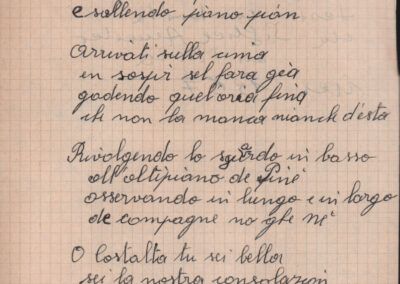 e sallendo piano pian
Arrivati sulla cima
un sospir sel fara già
godendo quel'aria fina
che non la manca nianch d'està
Rivolgendo lo sguardo in basso
all'altipiano de Piné
osservando in lungo e in largo
de compagne no ghe né
O Costalta tu sei bella
sei la nostra consolazion